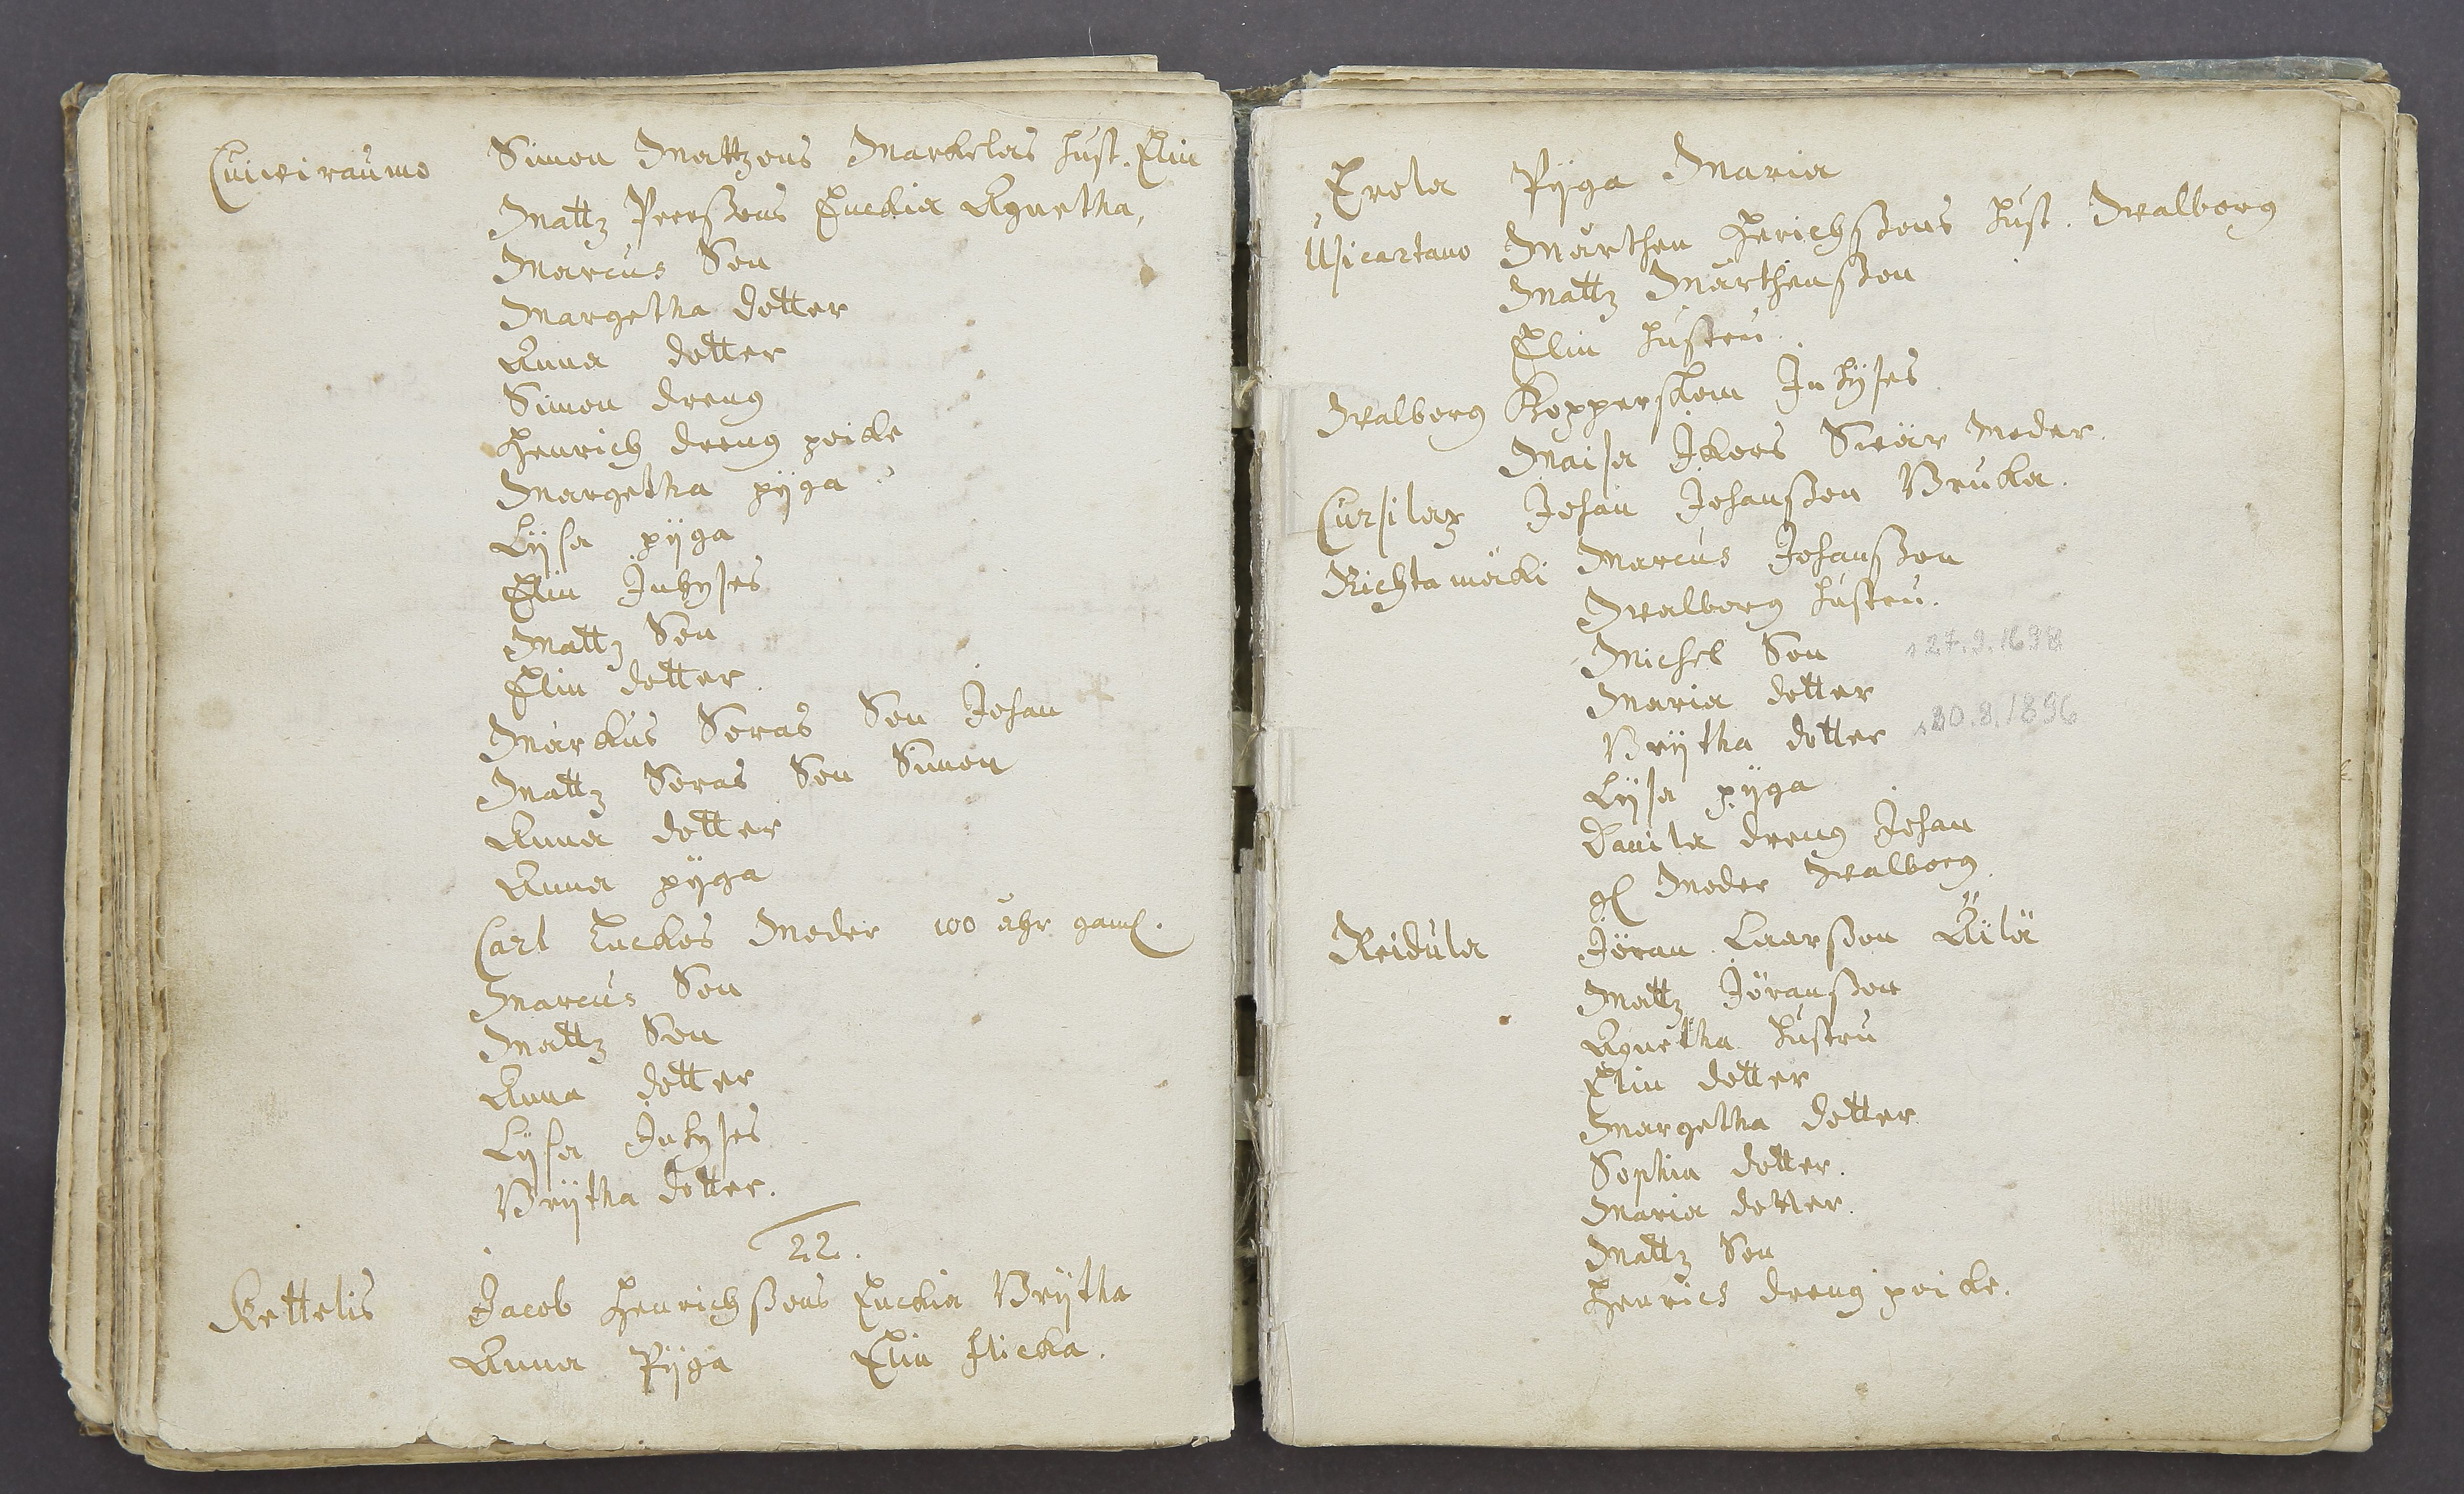 Cuiviraumo Simon Mattzons Markelas Hust. Elin
Mattz Peerssons Enckia Agnetha,
Marcus Son
Margetha dotter
Anna dotter
Simon dreng
Henrich dreng poicke
Margetha pijga
Lijsa pijga
Elin Inhyses
Mattz Son
Elin dotter.
Markus Soras Son Johan
Mattz Soras Son Simon
Anna dotter
Anna pijga
Carl Enckos Moder 100 åhr gaml.
Marcus Son
Mattz Son
Anna dotter
Lijsa Inhyses
Brijtha dotter.
22.
Kettelis Jacob Henrichssons Enckia Brijtha
Anna Pijga Elin flicka.
Erola Pijga Maria
Usicartano Mårthen Henrichssons Hust. Walborg
Mattz Mårthensson
Elin hustru.
Walborg Kopperslom Inhÿses
Maisa Ickoes Swär Moder.
Cursilax Johan Johansson Bruka.
Richtamäcki Marcus Johansson
Walborg hustru.
Michel Son 27.9.1698
Maria dotter
Brijtha dotter 30.8.1896
Lijsa pijga
Davila dreng Johan
gl Moder Walborg.
Reidula Jöran Larsson Äilä
Mattz Jöransson
Agnetha Hustru
Elin dotter
Margetha dotter
Sophia dotter.
Maria dotter.
Mattz Son
Henrich dreng poicke.